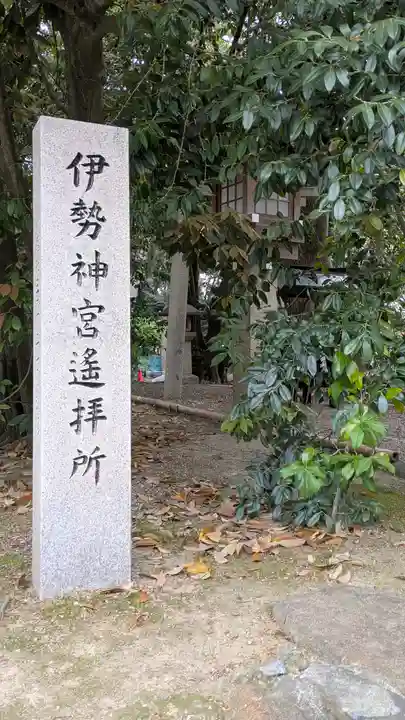 伊勢神宮遙拝所